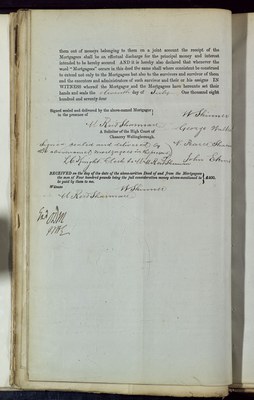 them out of moneys belonging to them on a joint account the receipt of the
Mortgagees shall be an effectual discharge for the principal money and interest
intended to be hereby secured AND it is hereby also declared that whenever the
word "Mortgagees" occurs in this deed the same shall where consistent be construed
to extend not only to the Mortgagees but also to the survivors and survivor of them
and the executors and administrators of such survivor and their or his assigns IN
WITNESS whereof the Mortgagor and the Mortgagees have hereunto set their
hands and seals the day of July One thousand eight
hundred and seventy four
Signed sealed and delivered by the above-named Mortgagor
in the presence of
W Skinner
A Solicitor of the High Court of
Chancery Wellingborough
George
Signed sealed and delivered by
the abovenamed mortgagees in the presence
Clerk to
John
RECEIVED on the day of the date of the above-written Deed of and from the Mortgagees
the sum of Four hundred pounds being the full consideration money above-mentioned to
be paid by them to me.
£400.
Witness
W Skinner